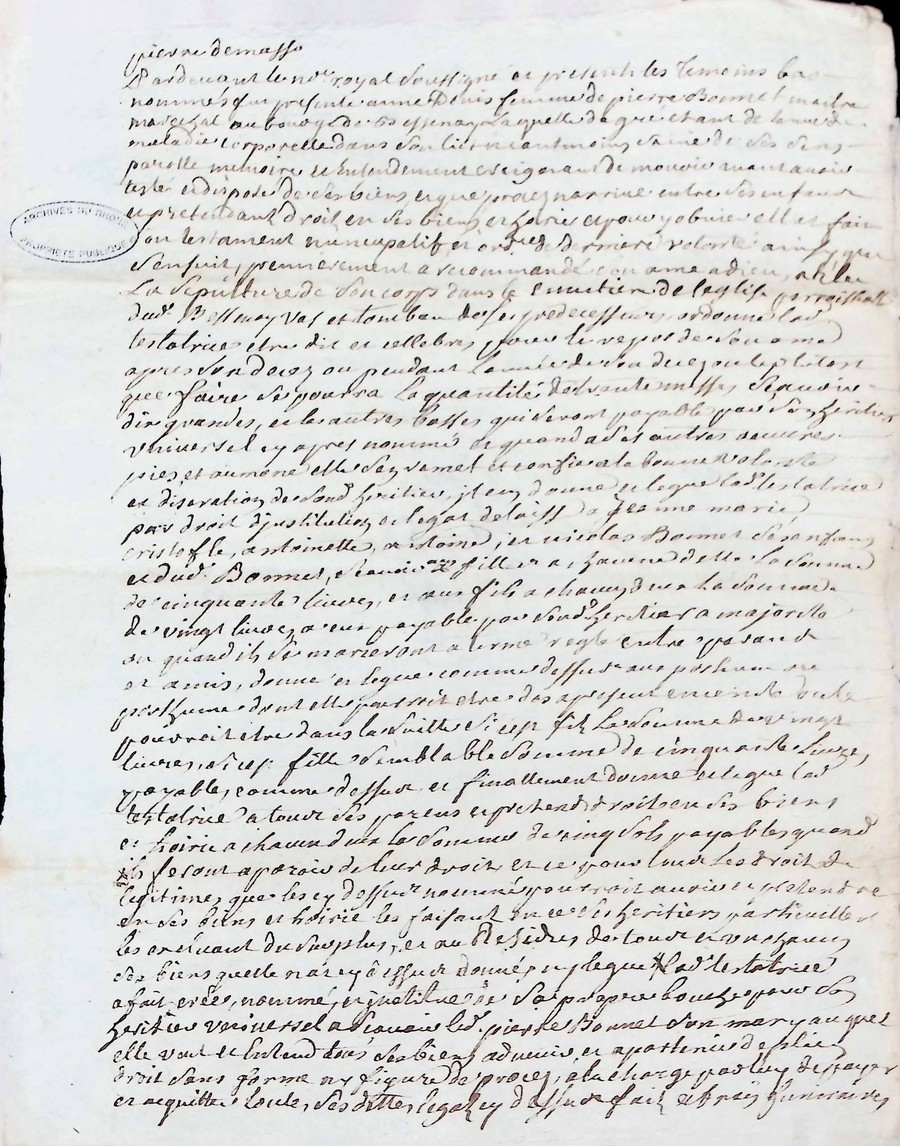 pierre demasso
Pardevant le nore royal soussigné et presents les temoins bas
nommés fut presente anne Denis femme de pierre Bonnet maitre
marechal au bourg de Bessenay laquelle de gre etant detenue de
maladie corporelle dans son lit neantmoins saine de ses sens
parolle memoire et Entendement craignant de mourir avant avoir
testé et disposé de ses biens et que proces narrive entre ses enfans
et pretendant droit en ses biens et hoirie et pour y obvier elle a fait
son testament nuncupatif et ordre de derniere volonté ainsy que
sensuit, premierement a recommandé son ame a dieu, a élu
La sepulture de son corps dans le cimetiere de leglise parroissialle
dud. Bessenay vas et tombeau de ses predecesseurs, ordonne lad.
testatrice etre dit et cellebré pour le repos de son ame
apres son deces ou pendant lannée de son deces ou le plutost
que faire se pourra la quantité de messes scavoir
dix grandes, et les autres basses qui seront payable par son heritier
universel cy apres nommé et quand a ses autres oeuvres
pies et aumone elle sen remet et confie a la bonne volonté
et discretion de sond. heritier, donne et legue lad. testatrice
par droit dinstitution et legat delaissé a Jeanne marie
cristofle, antoinette, antoine, et nicolas Bonnet ses enfans
et dud. Bonnet, scavoir aux filles a chacune delle la somme
de cinquante livres, et aux fils a chacun deux la somme
de vingt livres a eux payable par sond. heritier a majorité
ou quand ils se marieront a terme reglé entre parans
et amis, donne et legue comme dessus aux posthume ou
posthume dont elle pourroit etre des a present enceinte ou le
pourroit etre dans la suitte si cest fils la somme de vingt
livres, si cest fille semblable somme de cinquante livres,
payable, comme dessus et finallement donne et legue lad.
testatrice a tous ses parens et pretend. droit en ses biens
et hoirie a chacun deux la somme de cinq sols payables quand
ils feront aparoir de leur droit et ce pour tous les droit de
legitimes que les cy dessus nommés pourroit avoir et pretendre
en ses biens et hoirie les faisant en ce ses heritiers particuliers
les excluant du surplus, et au Residus de tous et un chacun
ses biens quelle na cy dessus donnés ny legué lad. testatrice
a fait crée, nommé, et institué de sa propre bouche pour son
heritier universel a scavoir led. pierre Bonnet son mary auquel
elle veut et Entend tous ses biens advenir et apartenir de plein
droit sans forme ny figure de proces, a la charge par luy de payer
et acquitter toute, ses dettes, legat cy dessus fait et frais funeraires
ARCHIVES DU RHONE
PROPRIETE PUBLIQUE